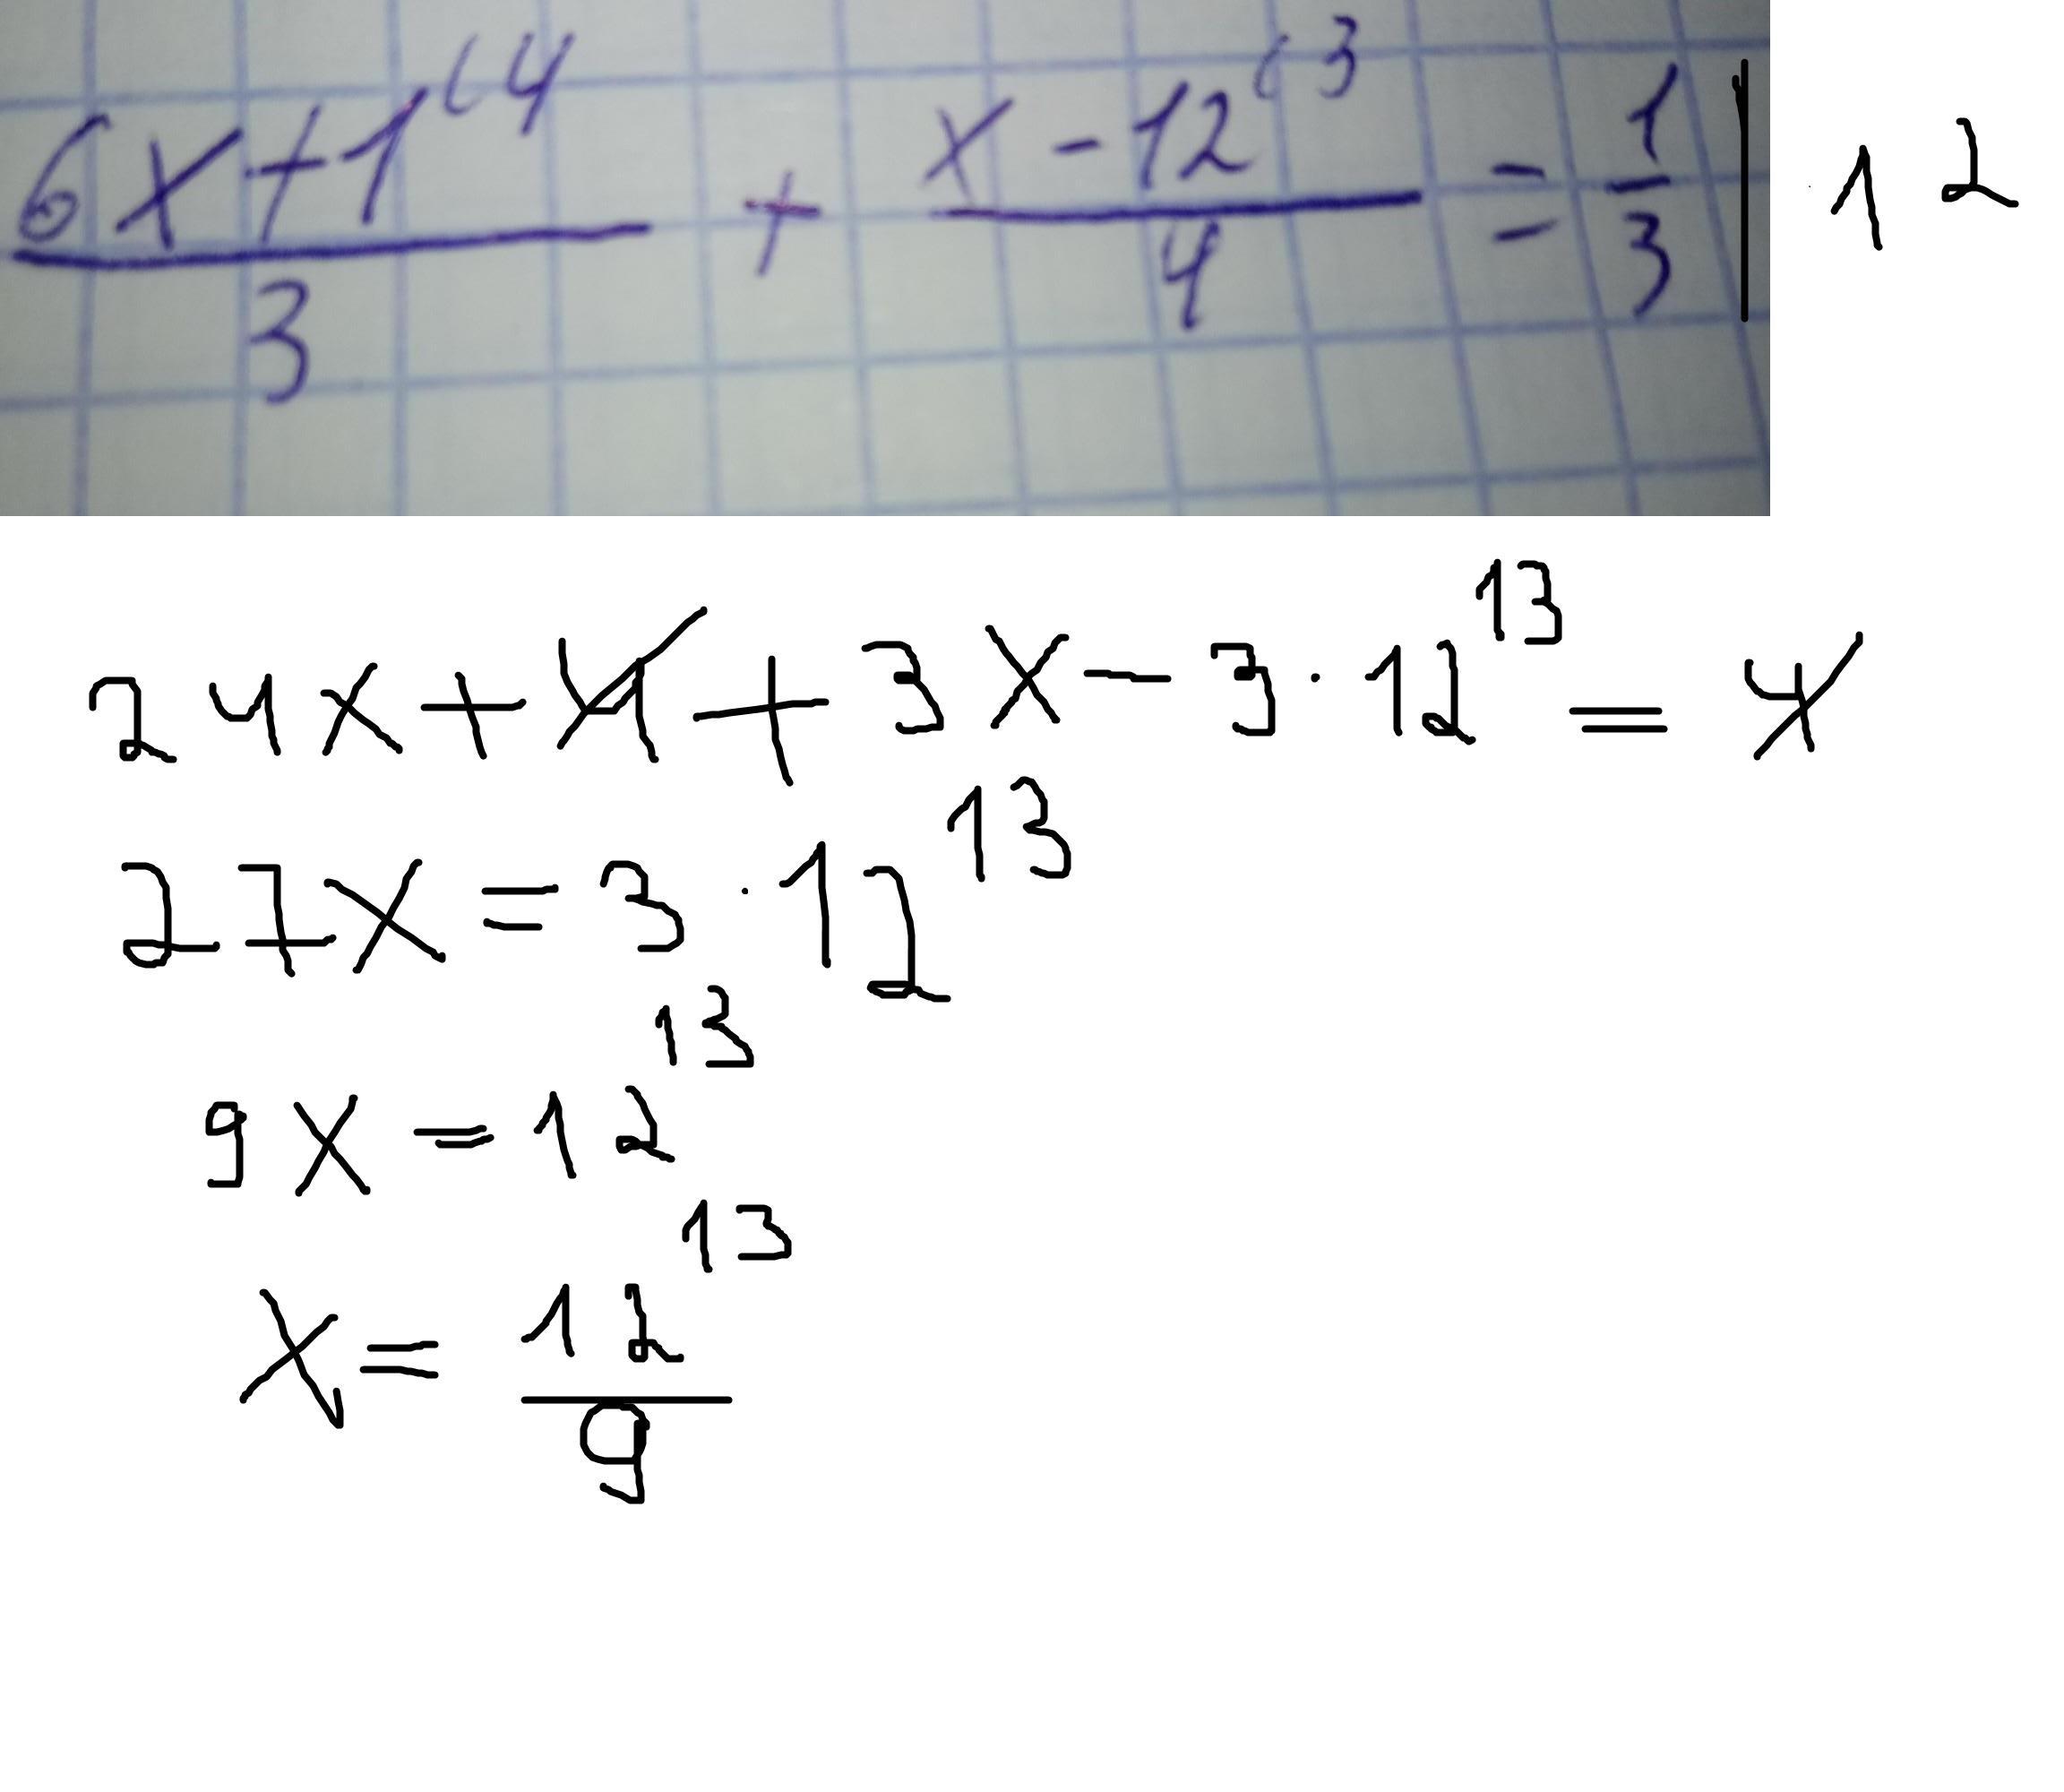 (6x+1^(4)/3 + (x-12^(3)/4 = 1/3 | · 12
24x + 4 + 3x - 3·12^13 = 4
27x = 3·12^13
9x = 12^13
x = 12^13/9